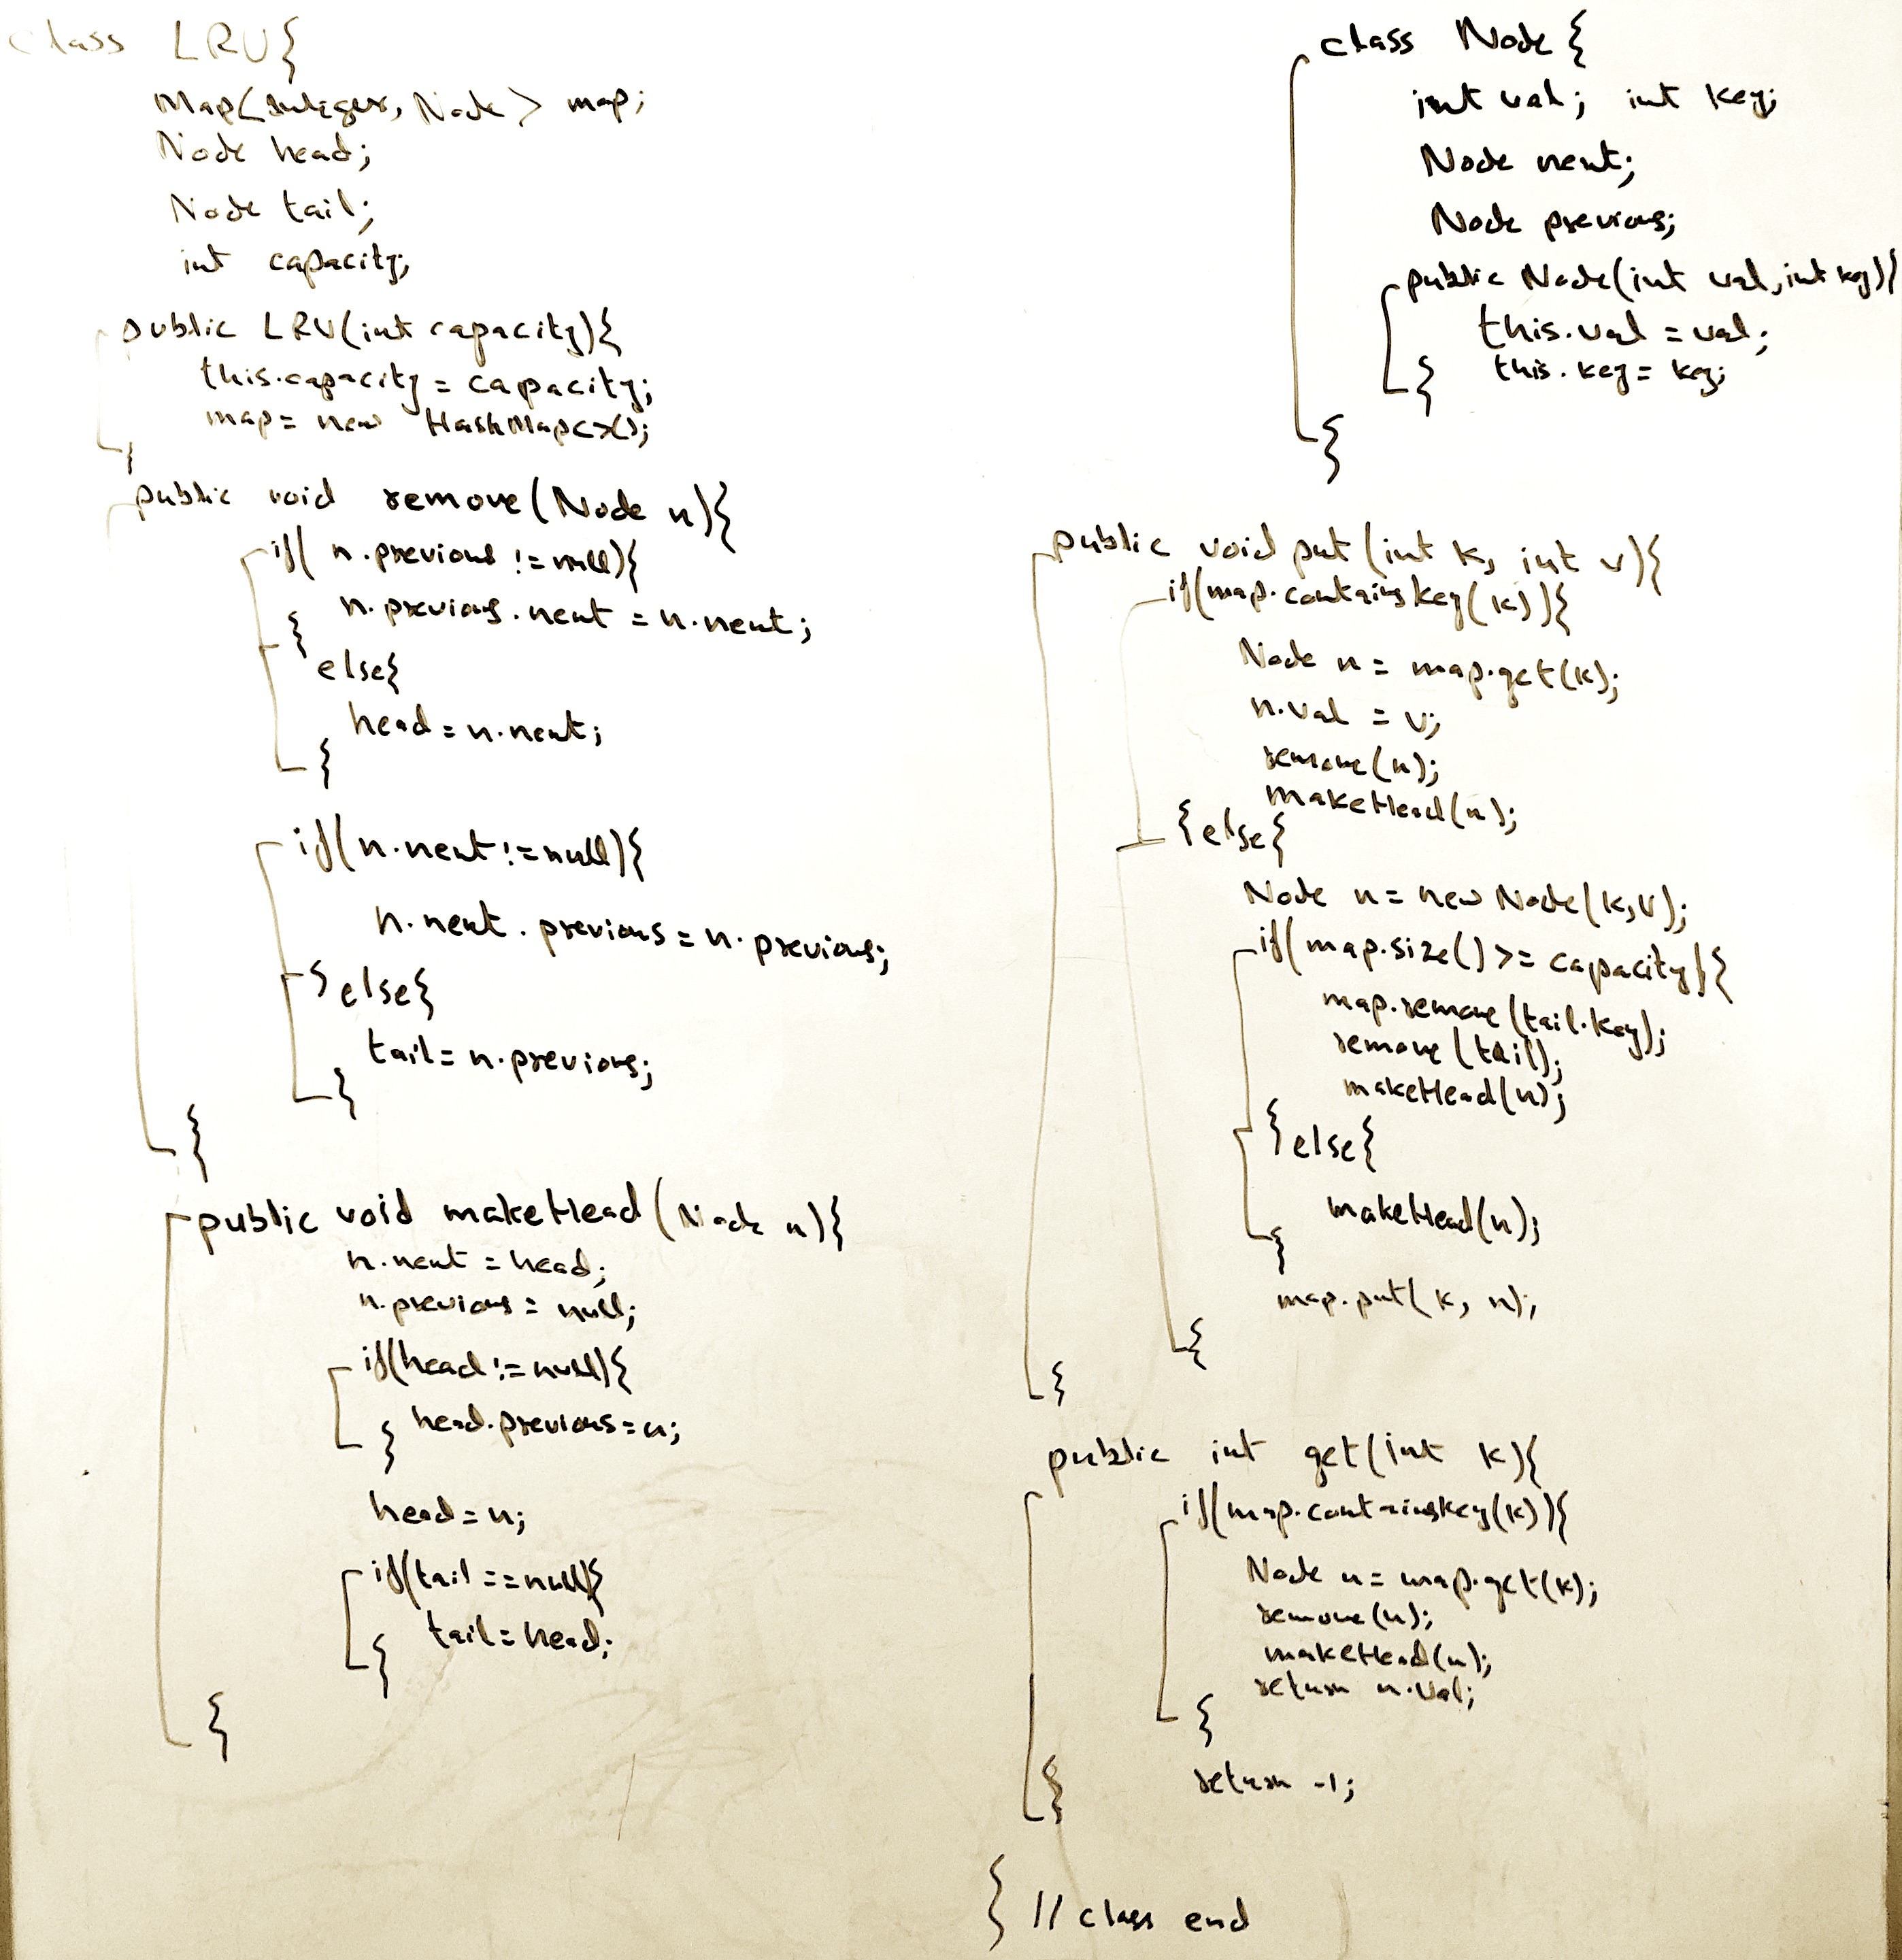 class LRU{
Map<Integer, Node> map;
Node head;
Node tail;
int capacity;
public LRU(int capacity){
this.capacity = capacity;
map = new HashMap<>();
}
public void remove(Node n){
if( n.previous != null){
n.previous.next = n.next;
}
else{
head = n.next;
}
if(n.next != null){
n.next.previous = n.previous;
} else{
tail = n.previous;
}
}
public void makeHead(Node n){
n.next = head;
n.previous = null;
if(head != null){
head.previous = n;
}
head = n;
if(tail == null){
tail = head;
}
}
class Node{
int val; int key;
Node next;
Node previous;
public Node(int val, int key){
this.val = val;
this.key = key;
}
}
public void put(int k, int v){
if(map.containsKey(k)){
Node n = map.get(k);
n.val = v;
remove(n);
makeHead(n);
} else{
Node n = new Node(k,v);
if(map.size() >= capacity){
map.remove(tail.key);
remove(tail);
makeHead(n);
} else{
makeHead(n);
}
map.put(k, n);
}
}
public int get(int k){
if(map.containsKey(k)){
Node n = map.get(k);
remove(n);
makeHead(n);
return n.val;
}
return -1;
}
} // class end